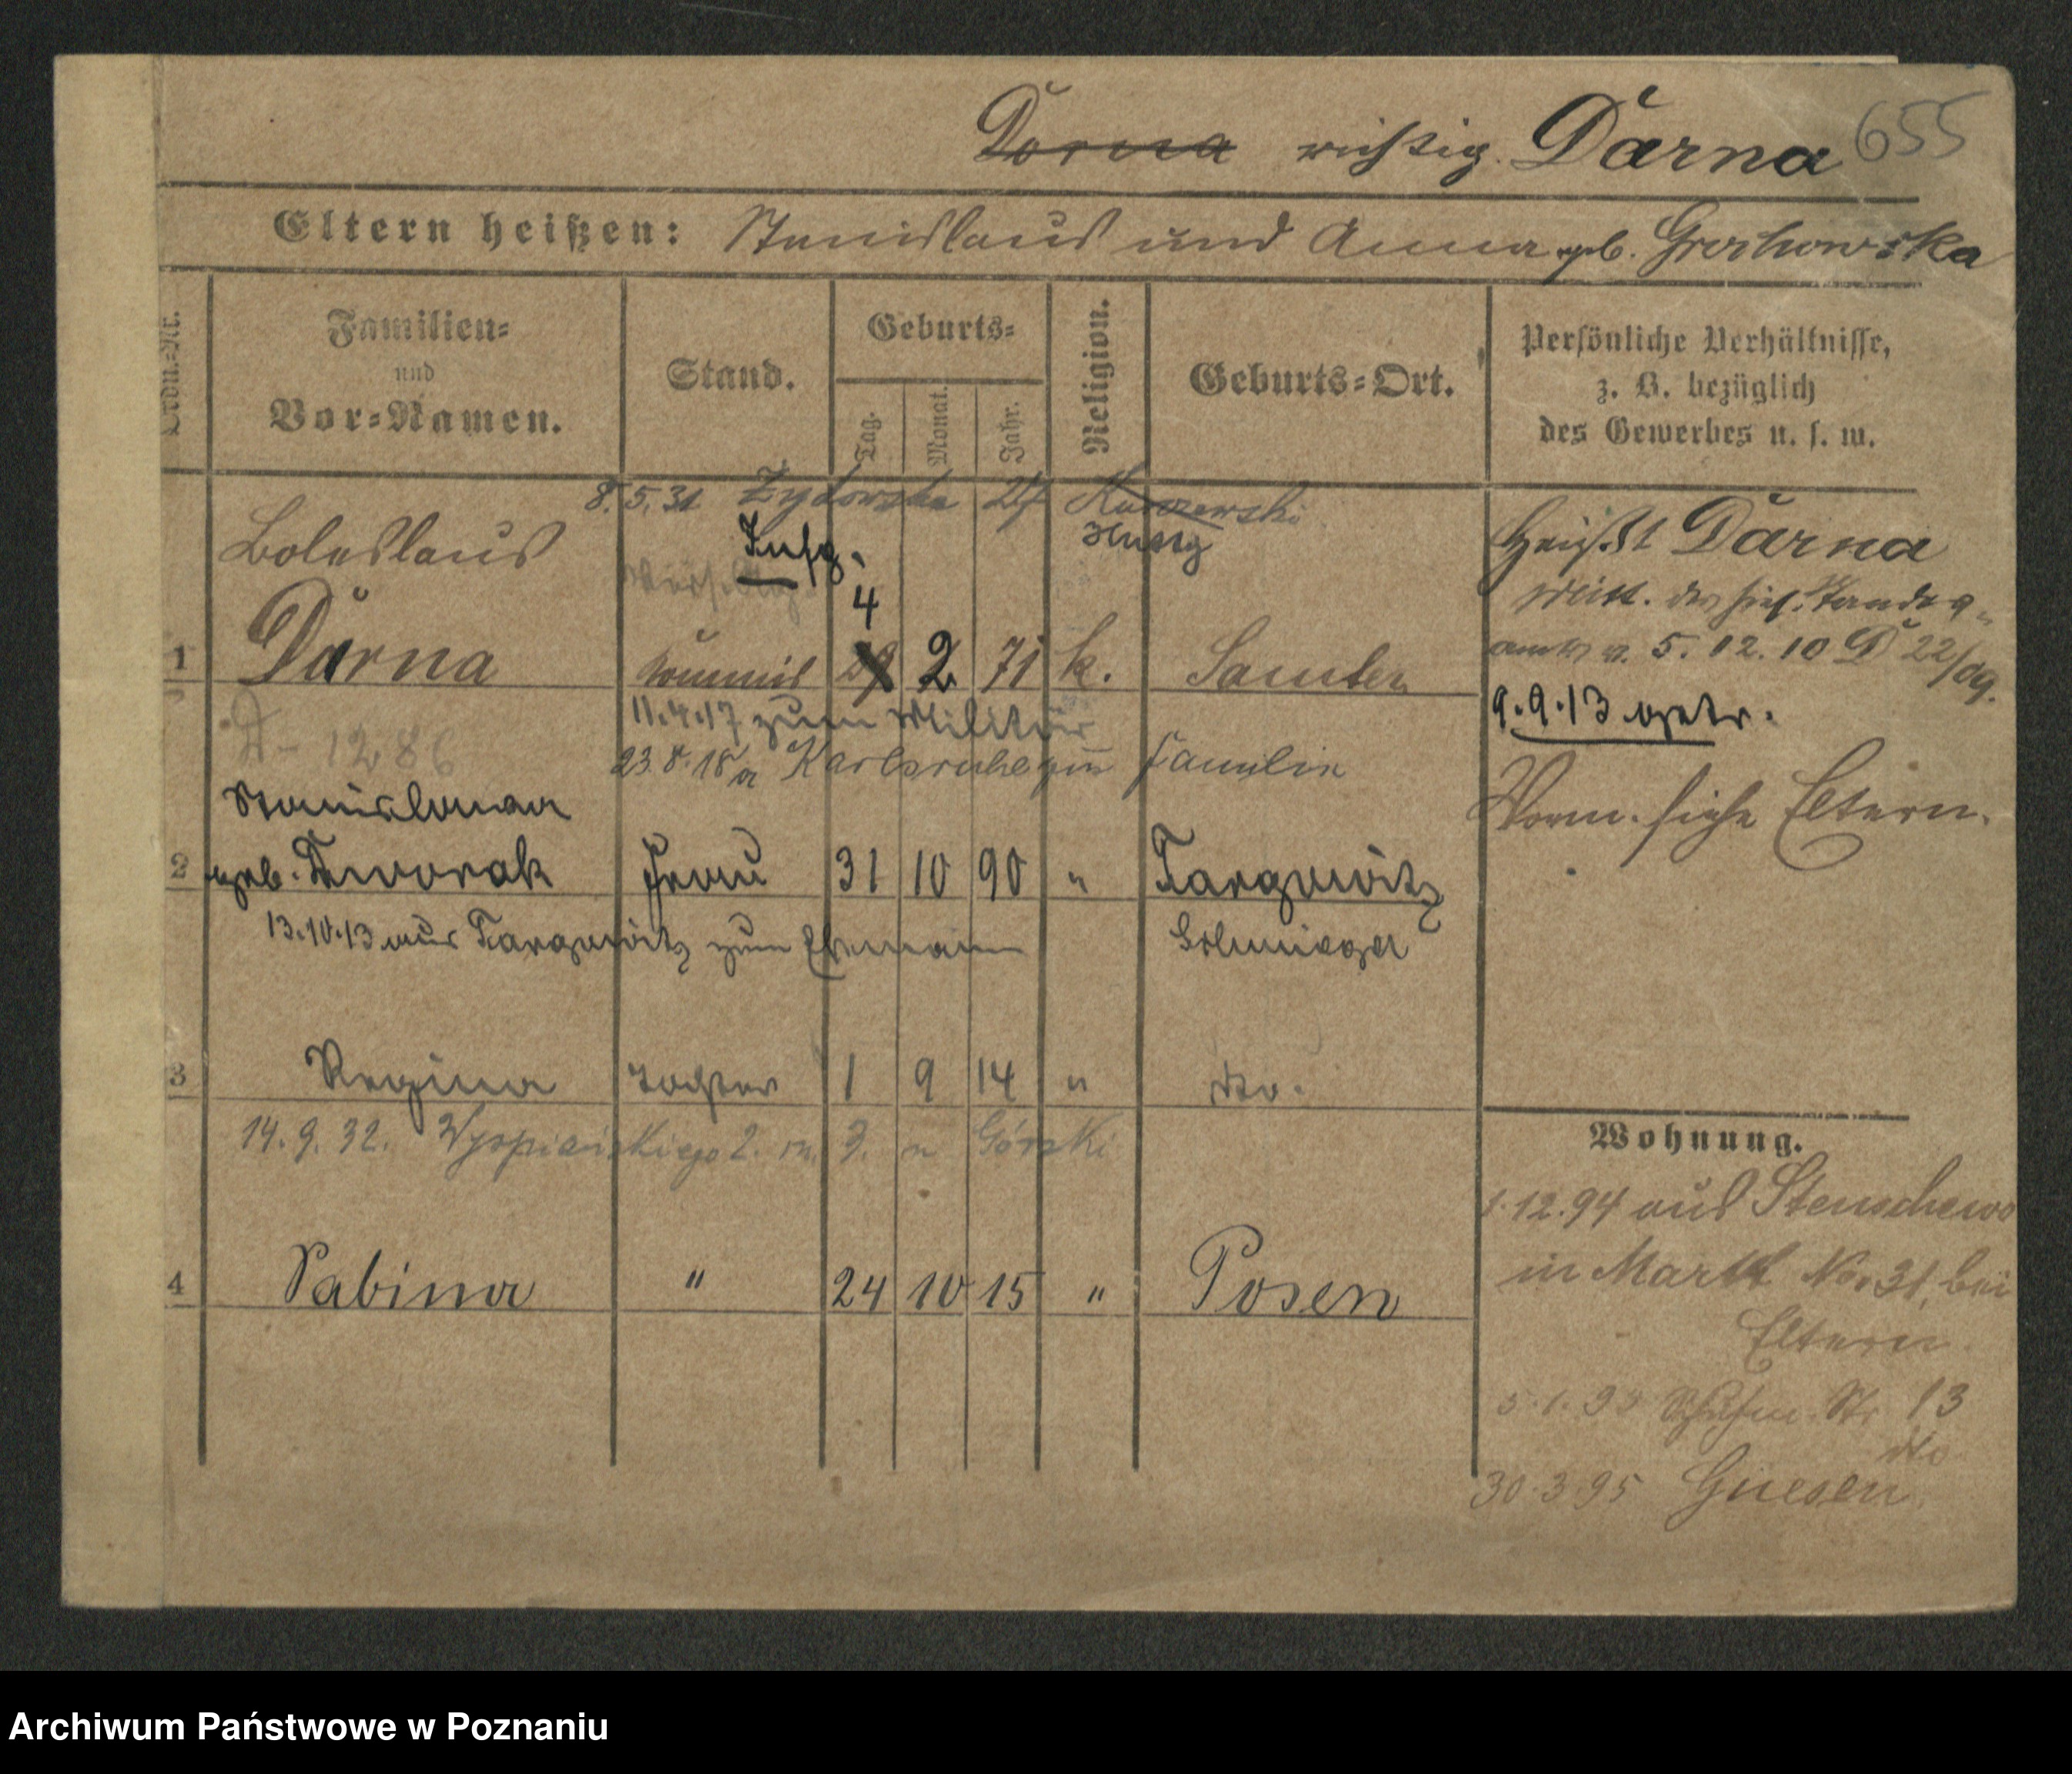 Dorna richtig Darna 655
Eltern heißen: Stanislaus und Anna geb. Grochowska
Ordn.-Nr.
Familien-
und
Vor-Namen.
Stand.
Geburts-
Tag.
Monat.
Jahr.
Religion.
Geburts-Ort.
Persönliche Verhältnisse,
z. B. bezüglich
des Gewerbes u. s. w.
8.5.31 Żydowska 27
Boleslaus
4
1 Darna Kommis 2 71 k. Samter
11.4.17 zum Militär
23.8.18 a Karlsruhe zur Familie
D-1286
Stanislawa
2 geb. Dworak Frau 31 10 90 " Targowitz
13.10.13 aus Targowitz zum Ehemann
3 Regina Tochter 1 9 14 " do.
14.9.32. Wyspiańskiego 2. m. 3. u Górski
4 Sabina " 24 10 15 " Posen
Heißt Darna
Mitt. des hies. Standes-
amts v. 5.12.10 D 22/09.
9.9.13 getr.
Vorm. siehe Eltern.
Wohnung.
1.12.94 aus Stenschewo
in Markt No. 31, bei
Eltern
Str 13
do
30.3.95 Gnesen
Archiwum Państwowe w Poznaniu